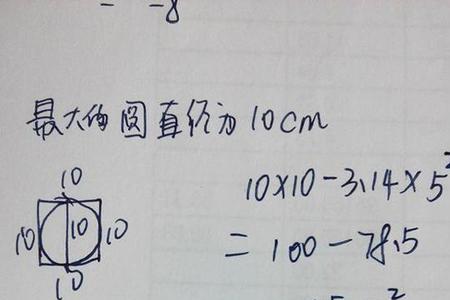 - -8
最大的圆直径为10cm
10
10×10-3.14×5²
10 10 10
=100-78.5
10